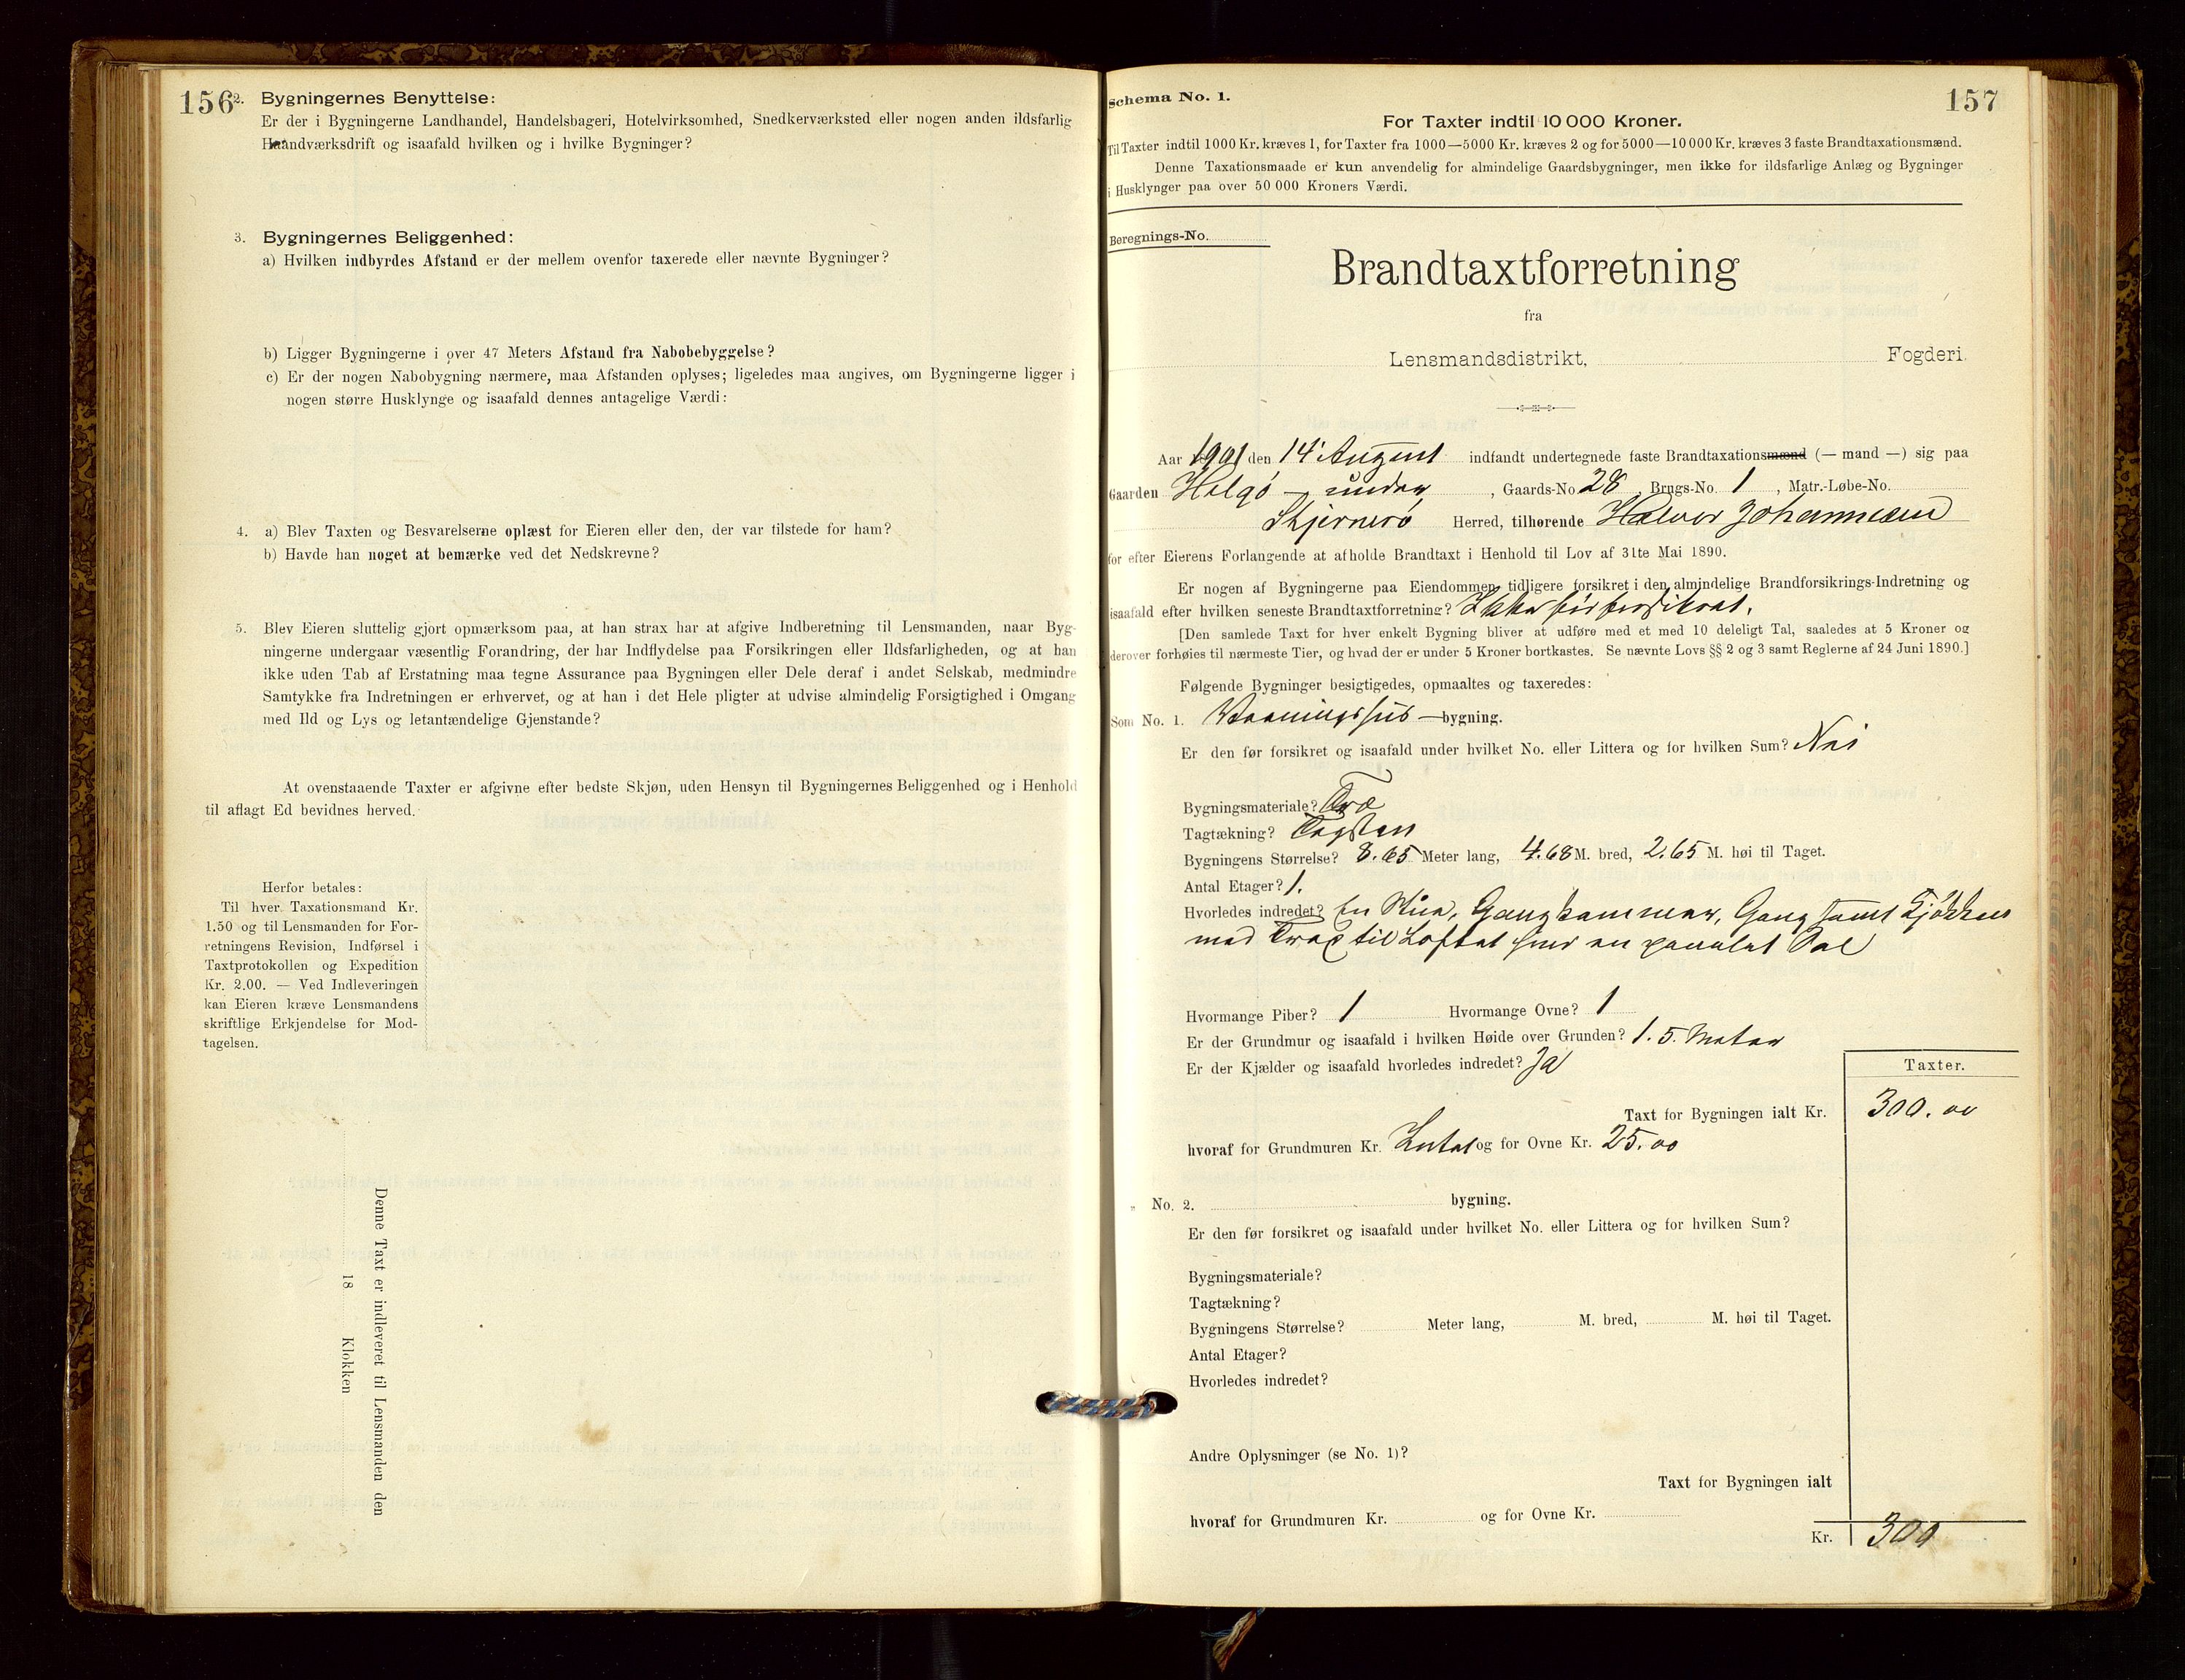 156
2. Bygningernes Benyttelse:
Er der i Bygningerne Landhandel, Handelsbageri, Hotelvirksomhed, Snedkerværksted eller nogen anden ildsfarlig
Haandværksdrift og isaafald hvilken og i hvilke Bygninger?
3. Bygningernes Beliggenhed:
a) Hvilken indbyrdes Afstand er der mellem ovenfor taxerede eller nævnte Bygninger?
b) Ligger Bygningerne i over 47 Meters Afstand fra Nabobebyggelse?
c) Er der nogen Nabobygning nærmere, maa Afstanden oplyses; ligeledes maa angives, om Bygningerne ligger i
nogen større Husklynge og isaafald dennes antagelige Værdi:
4. a) Blev Taxten og Besvarelserne oplæst for Eieren eller den, der var tilstede for ham?
b) Havde han noget at bemærke ved det Nedskrevne?
5. Blev Eieren sluttelig gjort opmærksom paa, at han strax har at afgive Indberetning til Lensmanden, naar Byg-
ningerne undergaar væsentlig Forandring, der har Indflydelse paa Forsikringen eller Ildsfarligheden, og at han
ikke uden Tab af Erstatning maa tegne Assurance paa Bygningen eller Dele deraf i andet Selskab, medmindre
Samtykke fra Indretningen er erhvervet, og at han i det Hele pligter at udvise almindelig Forsigtighed i Omgang
med Ild og Lys og letantændelige Gjenstande?
At ovenstaaende Taxter er afgivne efter bedste Skjøn, uden Hensyn til Bygningernes Beliggenhed og i Henhold
til aflagt Ed bevidnes herved.
Herfor betales:
Til hver Taxationsmand Kr.
1.50 og til Lensmanden for For-
retningens Revision, Indførsel i
Taxtprotokollen og Expedition
Kr. 2.00. — Ved Indleveringen
kan Eieren kræve Lensmandens
skriftlige Erkjendelse for Mod-
tagelsen.
Denne Taxt er indleveret til Lensmanden den
18 Klokken
Schema No. 1.
157
For Taxter indtil 10 000 Kroner.
Til Taxter indtil 1000 Kr. kræves 1, for Taxter fra 1000—5000 Kr. kræves 2 og for 5000—10 000 Kr. kræves 3 faste Brandtaxationsmænd.
Denne Taxationsmaade er kun anvendelig for almindelige Gaardsbygninger, men ikke for ildsfarlige Anlæg og Bygninger
i Husklynger paa over 50 000 Kroners Værdi.
Beregnings-No.
Brandtaxtforretning
fra
Lensmandsdistrikt, Fogderi.
Aar 1901 den 14 August indfandt undertegnede faste Brandtaxationsmænd (— mand —) sig paa
Gaarden Helgö — , Gaards-No 28, Brugs-No. 1, Matr.-Løbe-No.
Skjernerö Herred, tilhørende Halvor Johannesen
for efter Eierens Forlangende at afholde Brandtaxt i Henhold til Lov af 31te Mai 1890.
Er nogen af Bygningerne paa Eiendommen tidligere forsikret i den almindelige Brandforsikrings-Indretning og
isaafald efter hvilken seneste Brandtaxtforretning? Ikke før forsikret.
[Den samlede Taxt for hver enkelt Bygning bliver at udføre med et med 10 deleligt Tal, saaledes at 5 Kroner og
derover forhøies til nærmeste Tier, og hvad der er under 5 Kroner bortkastes. Se nævnte Lovs §§ 2 og 3 samt Reglerne af 24 Juni 1890.]
Følgende Bygninger besigtigedes, opmaaltes og taxeredes:
Som No. 1. Vaaningshus —bygning.
Er den før forsikret og isaafald under hvilket No. eller Littera og for hvilken Sum? Nei
Bygningsmateriale? Træ
Tagtækning? Tagsten
Bygningens Størrelse? 8.65 Meter lang, 4.68 M. bred, 2.65 M. høi til Taget.
Antal Etager? 1.
Hvorledes indredet? En Stue, Gangkammer, Gang samt Kjøkken
med Trap til Loftet hvor en panelet Sal
Hvormange Piber? 1 Hvormange Ovne? 1
Er der Grundmur og isaafald i hvilken Høide over Grunden? 1.5. Meter
Er der Kjælder og isaafald hvorledes indredet? Ja
Taxter.
Taxt for Bygningen ialt Kr. 300.00
hvoraf for Grundmuren Kr. Intet og for Ovne Kr. 25.00
„ No. 2. bygning.
Er den før forsikret og isaafald under hvilket No. eller Littera og for hvilken Sum?
Bygningsmateriale?
Tagtækning?
Bygningens Størrelse? Meter lang, M. bred, M. høi til Taget.
Antal Etager?
Hvorledes indredet?
Andre Oplysninger (se No. 1)?
Taxt for Bygningen ialt
hvoraf for Grundmuren Kr. og for Ovne Kr.
Kr. 300